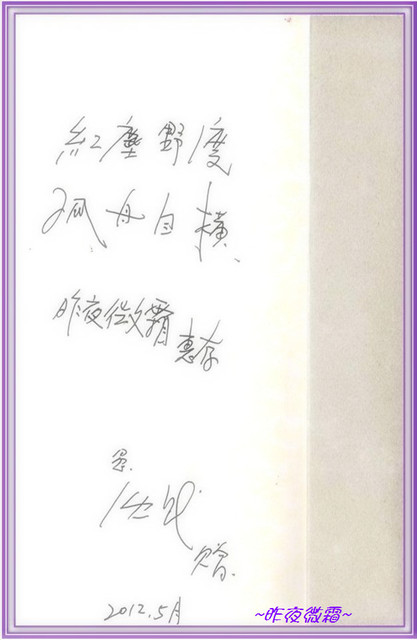 紅塵野渡
孤舟自横
昨夜微霜惠存
赠.
2012.5月
~昨夜微霜~